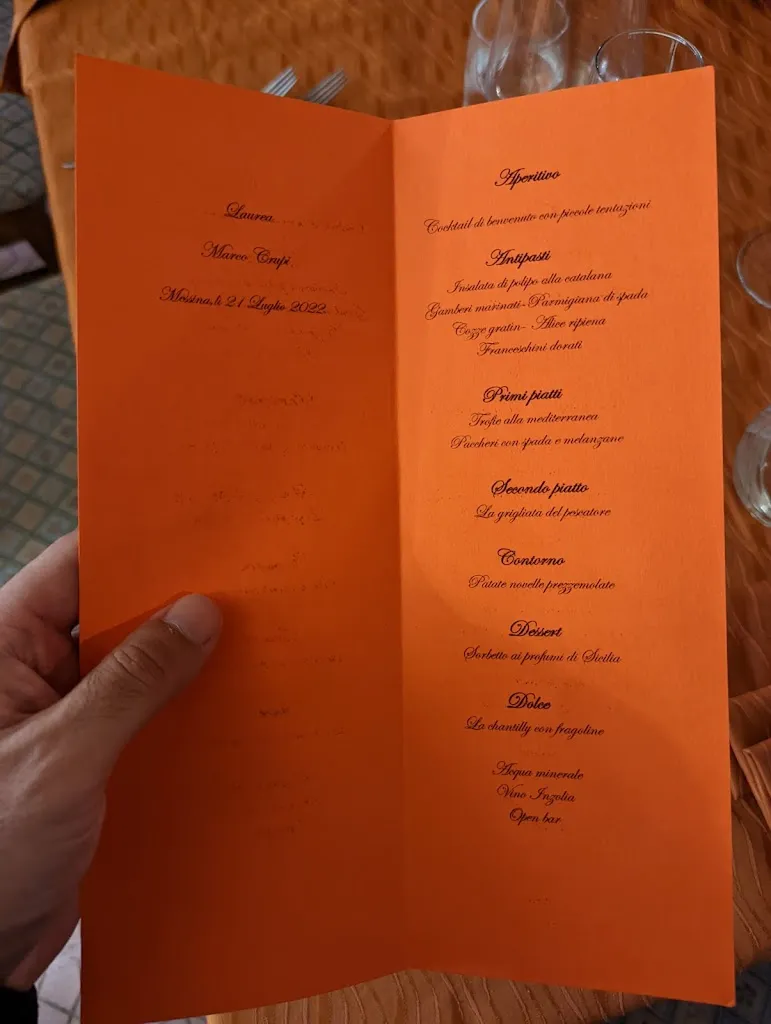 Laurea
Marco Crupi
Messina, li 21 Luglio 2022
Aperitivo
Cocktail di benvenuto con piccole tentazioni
Antipasti
Insalata di polipo alla catalana
Gamberi marinati- Parmigiana di spada
Cozze gratin- Alice ripiena
Franceschini dorati
Primi piatti
Trofie alla mediterranea
Paccheri con spada e melanzane
Secondo piatto
La grigliata del pescatore
Contorno
Patate novelle prezzemolate
Dessert
Sorbetto ai profumi di Sicilia
Dolce
La chantilly con fragoline
Acqua minerale
Vino Inzolia
Open bar